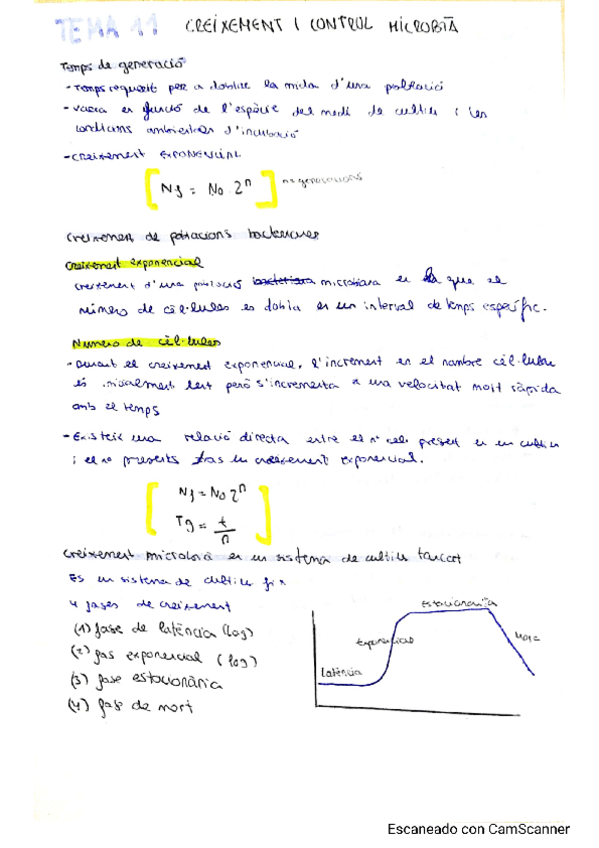 TEMA 11 CREIXEMENT I CONTROL MICROBIÀ
Temps de generació
- Temps requerit per a doblar la mida d'una població
- varia en funció de l'espècie del medi de cultiu i les
condicions ambientals d'incubació
- CREIXEMENT EXPONENCIAL
[ Nf = No 2^n ] n = generacions
Creixement de poblacions bacterianes
Creixement exponencial
creixement d'una població bacteriana microbiana en la que el
número de cèl·lules es dobla en un interval de temps específic.
Número de cèl·lules
- Durant el creixement exponencial, l'increment en el nombre cèl·lules
és inicialment lent però s'incrementa a una velocitat molt ràpida
amb el temps
- Existeix una relació directa entre el nº cels present en un cultiu
i el nº presents en creixement exponencial.
[ Nf = No 2^n
Tg = t/n ]
Creixement microbià en un sistema de cultiu tancat
Es un sistema de cultiu fix
4 fases de creixement
(1) fase de latència (log)
(2) fas exponencial (log)
(3) fase estacionària
(4) fase de mort
Estacionària
Exponencial
Mort
Latència
Escaneado con CamScanner